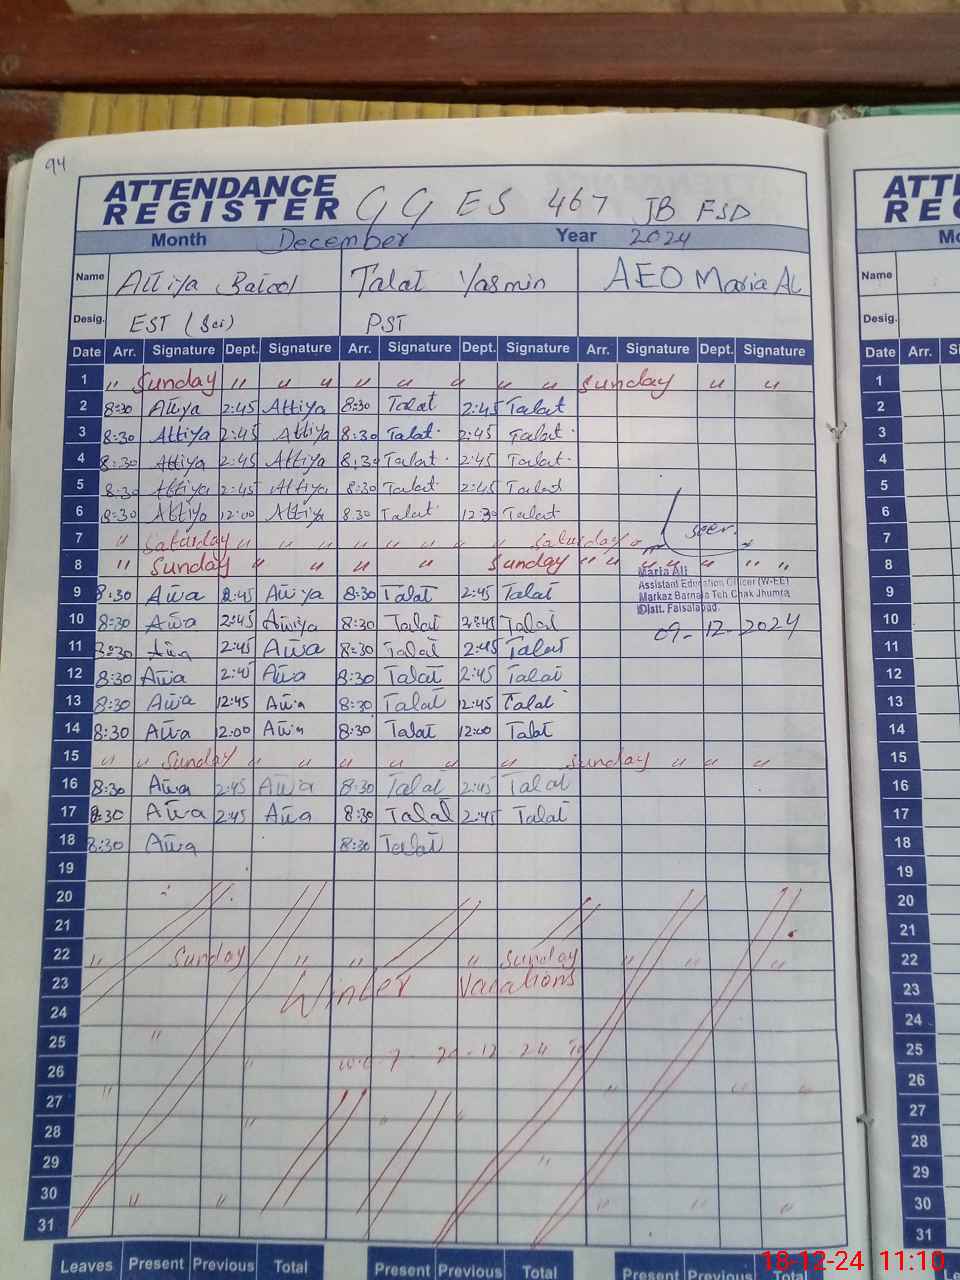 94
ATTENDANCE
REGISTER GGES 467 JB FSD
Month December Year 2024
Name Attiya Batool Talat Yasmin AEO Maria Al
Desig. EST (Sci) PST
Date Arr. Signature Dept. Signature Arr. Signature Dept. Signature Arr. Signature Dept. Signature
1 " Sunday " " " " " " " " Sunday " "
2 8:30 Attiya 2:45 Attiya 8:30 Talat 2:45 Talat
3 8:30 Attiya 2:45 Attiya 8:30 Talat 2:45 Talat
4 8:30 Attiya 2:45 Attiya 8:30 Talat 2:45 Talat
5 8:30 Attiya 2:45 Attiya 8:30 Talat 2:45 Talat
6 8:30 Attiya 12:00 Attiya 8:30 Talat 12:30 Talat
7 " Saturday " " " " " " " " Saturday "
seen
8 " Sunday " " " " Sunday " " " " " " "
Maria Ali
Assistant Education Officer (W-EE)
Markaz Barnala Teh Chak Jhumra
Distt. Faisalabad.
09-12-2024
9 8:30 Attiya 2:45 Attiya 8:30 Talat 2:45 Talat
10 8:30 Attiya 2:45 Attiya 8:30 Talat 2:45 Talat
11 8:30 Attiya 2:45 Attiya 8:30 Talat 2:45 Talat
12 8:30 Attiya 2:45 Attiya 8:30 Talat 2:45 Talat
13 8:30 Attiya 12:45 Attiya 8:30 Talat 12:45 Talat
14 8:30 Attiya 2:00 Attiya 8:30 Talat 12:00 Talat
15 " " Sunday " " " " " " Sunday " " "
16 8:30 Attiya 2:45 Attiya 8:30 Talat 2:45 Talat
17 8:30 Attiya 2:45 Attiya 8:30 Talat 2:45 Talat
18 8:30 Attiya 8:30 Talat
19
20
21
22 " Sunday " " " Sunday " " "
23 Winter Vacations
24
25 "
26 " w.e.f 20-12-24 To
27 " " " "
28 " " "
29 "
30 " " " "
31
Leaves Present Previous Total Present Previous Total Present Previous Total
ATT
REG
Mo
Name
Desig.
Date Arr. Si
1
2
3
4
5
6
7
8
9
10
11
12
13
14
15
16
17
18
19
20
21
22
23
24
25
26
27
28
29
30
31
18-12-24 11:10